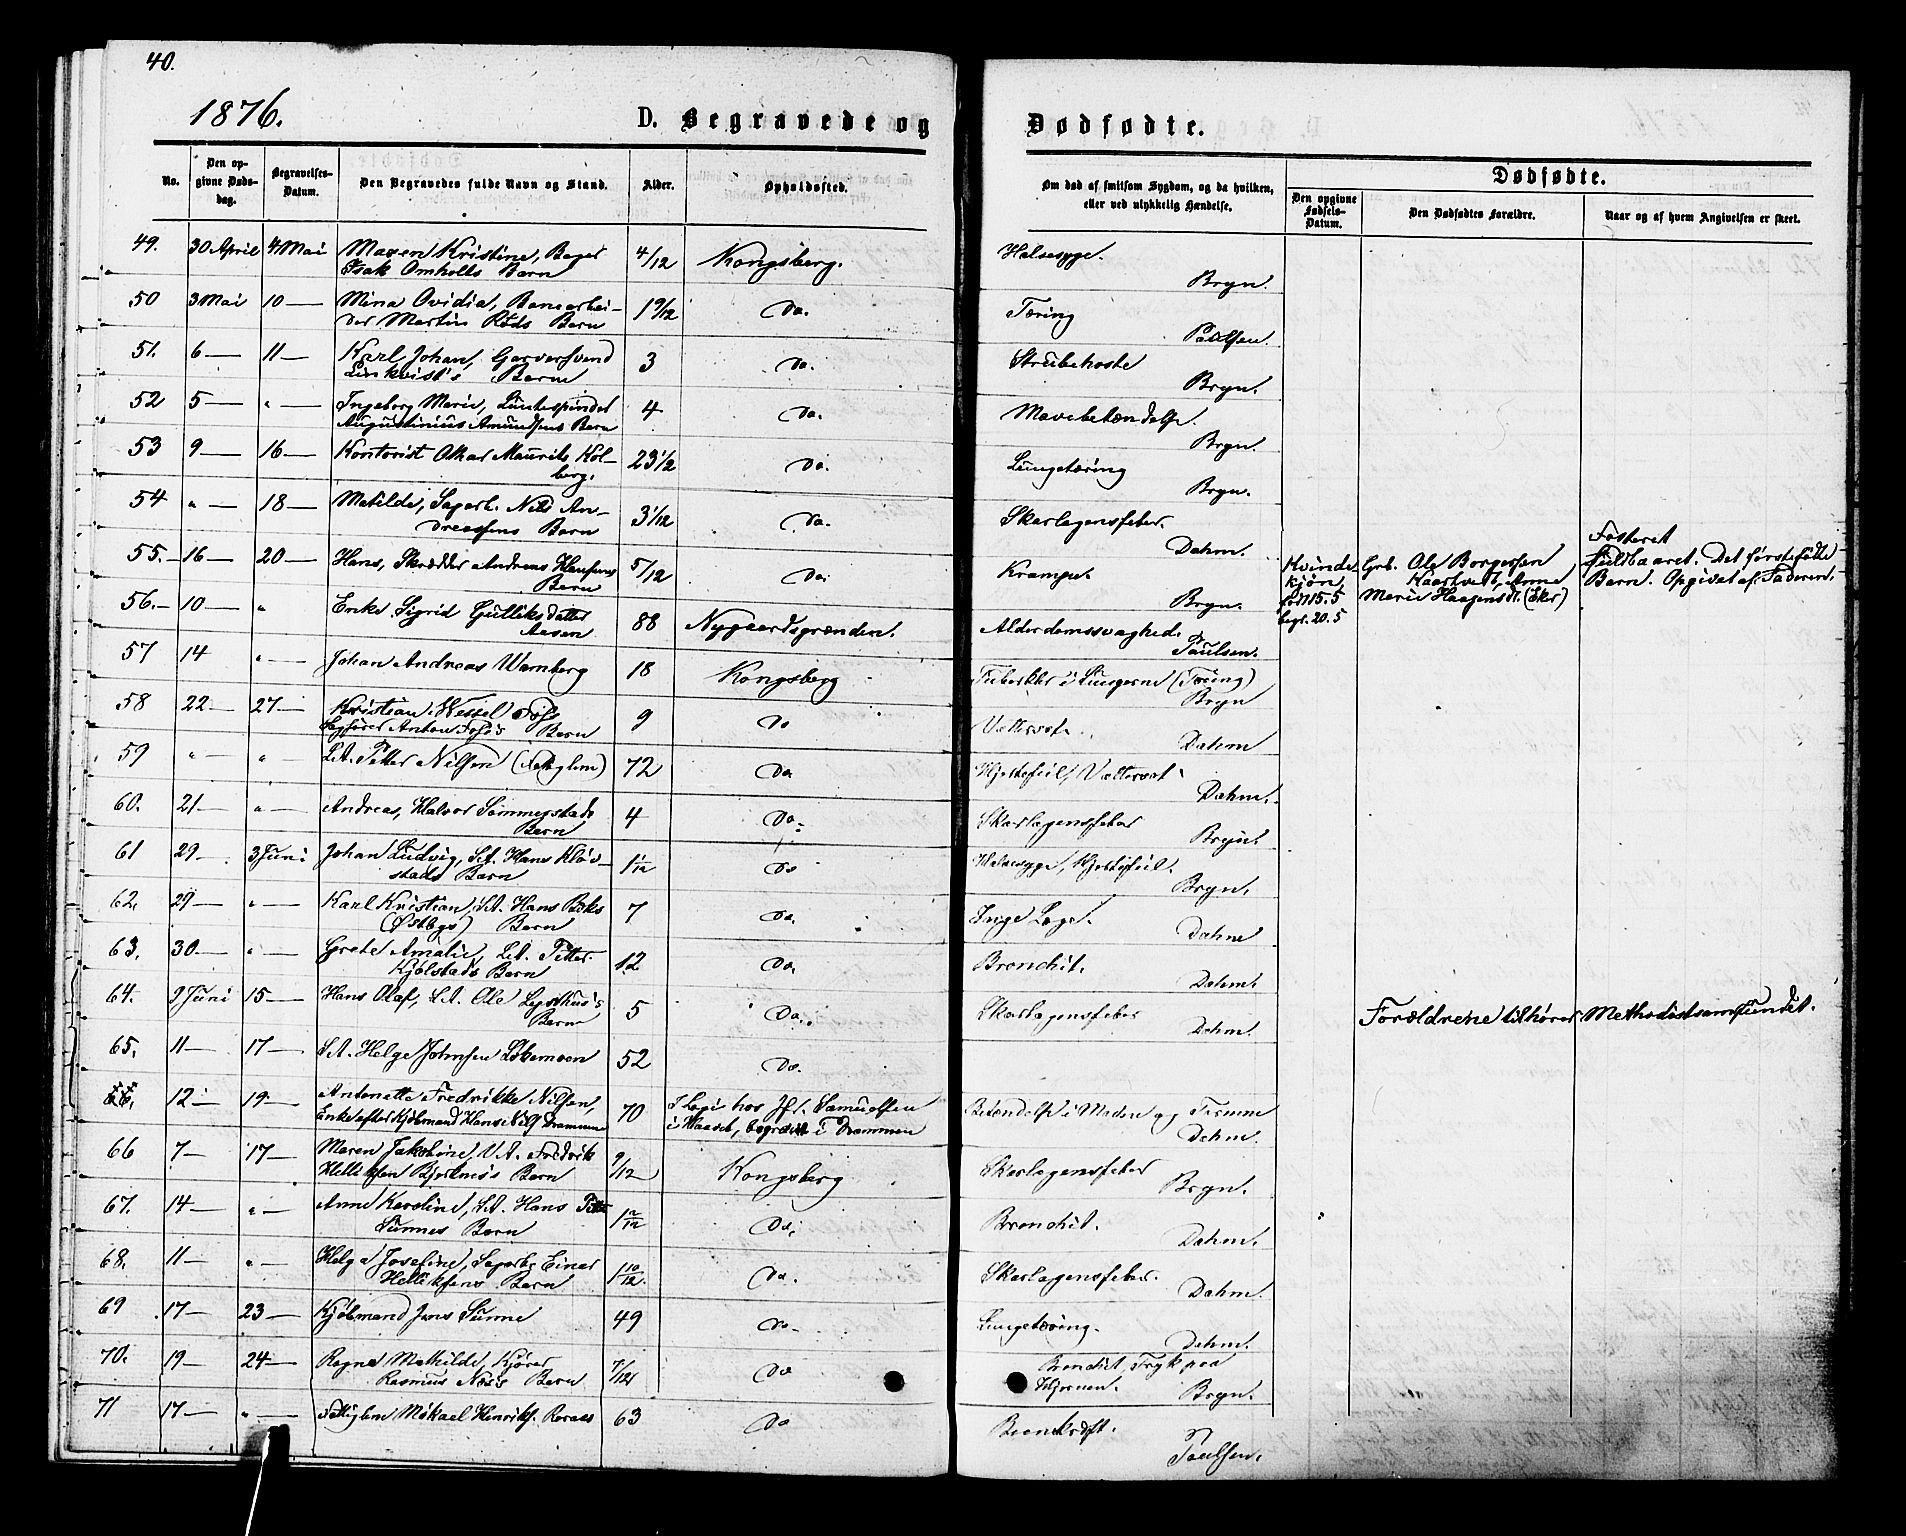 40.
1876.
D. Begravede og
Dødfødte.
No.
Den op-
givne Døds-
dag.
Begravelses-
Datum.
Den Begravedes fulde Navn og Stand.
Alder.
Opholdssted.
Om død af smitsom Sygdom, og da hvilken,
eller ved ulykkelig Hændelse.
Dødfødte.
Den opgivne
Fødsels-
Datum.
Den Dødfødtes Forældre.
Naar og af hvem Angivelsen er skeet.
49. 30 April 4 Mai Maren Kristine, Bager 4/12 Kongsberg. Halsesyge.
Isak Omholts Barn Bryn.
50 3 Mai 10 — Mina Ovidia, Banearbei- 1 9/12 Do. Tæring
der Martin Røds Barn Paulsen.
51. 6 — 11 — Karl Johan, Garversvend 3 Do. Strubehoste
Linkvist's Barn Bryn.
52 5 — " — Ingeborg Marie, Luntespinder 4 Do. Mavebetændelse.
Augustinius Amundsens Barn Bryn.
53 9 — 16 — Kontorist Oskar Maurits Kol- 23 1/2 Do. Lungetæring
berg. Bryn.
54 " — 18 — Matilde, Sagarb. Nils An- 3 1/12 Do. Skarlagensfeber.
dreassens Barn Dahm.
55. 16 — 20 — Hans, Skrædder Andreas Hansens 5/12 Do. Krampe.
Barn Bryn.
Kvinde-
kjøn
født 15.5
begr. 20.5
Grb. Ole Borgersen
Kaarhvedt, Anne
Marie Haagensdt. (Eker)
Fosteret
fuldbaaret. Det førstefødte
Barn. Opgivet af Faderen.
56. 10 — " Enke Sigrid Gulliksdatter 88 Nygaardsgrænden. Alderdomssvaghed.
Aasen Paulsen.
57 14 " — Johan Andreas Wamberg 18 Kongsberg Tuberkler i Lungerne (Tæring)
Bryn
58 22 — 27 — Kristian Wessel Foss 9 Do Vattersot.
Sagfører Anton Foss's Barn Dahm
59 " — " — S.A. Petter Nilsen (Fattiglem) 72 Do Hjertefeil, Vattersot
Dahm.
60. 21 — " — Andreas, Halvor Sommerstads 4 Do. Skarlagensfeber
Barn Bryn.
61 29 — 3 Juni Johan Ludvig, S.A. Hans Klov- 1 1/12 Do Halsesyge, Hjertefeil.
stads Barn Bryn.
62. 29 — " — Karl Kristian, S.A. Hans Bøks 7 Do. Inge Læge.
(Østbys) Barn Dahm
63. 30. — " — Grete Amalie, S.A. Petter 12 Do. Bronchit.
Kjølstads Barn Dahm.
64. 9 Juni 15 — Hans Olaf, S.A. Ole Lysthus's 5 Do. Skarlagensfeber
Barn Dahm.
Forældrene tilhører Methodistsamfundet.
65. 11 — 17 — S.A. Helge Johnsen Løkemoen 52 Do.
66. 12 — 19 — Antonette Fredrikke Nilsen, 70 I Logi hos Jfr. Samuelsen Betændelse i Maven og Tarmene
Enke efter Kjøbmand Hans Nils. Drammen i Huuset, begravet i Drammen Dahm.
66 7 — 17 — Maren Jakobine, V.A. Fredrik 9/12 Kongsberg Skarlagensfeber
Helliksen Bjerknes's Barn Bryn.
67. 14 — " — Anne Karoline, S.A. Hans Petter 1 Do. Bronchit.
Sunnes Barn Dahm.
68. 11 — " — Helga Josefine, Sagarb. Einar 1 10/12. Do. Skarlagensfeber.
Helliksens Barn Dahm.
69 17 — 23 — Kjøbmand Jens Sunne 49 Do. Lungetæring.
Dahm.
70. 19 — 24 — Ragna Mathilde, Kjører 7/12 Do Bronchit, Tryk paa
Rasmus Næs's Barn Hjernen. Bryn.
71 17 — " — Fattiglem Mikael Henriks. Roraas 63 Do Brændsott.
Paulsen.